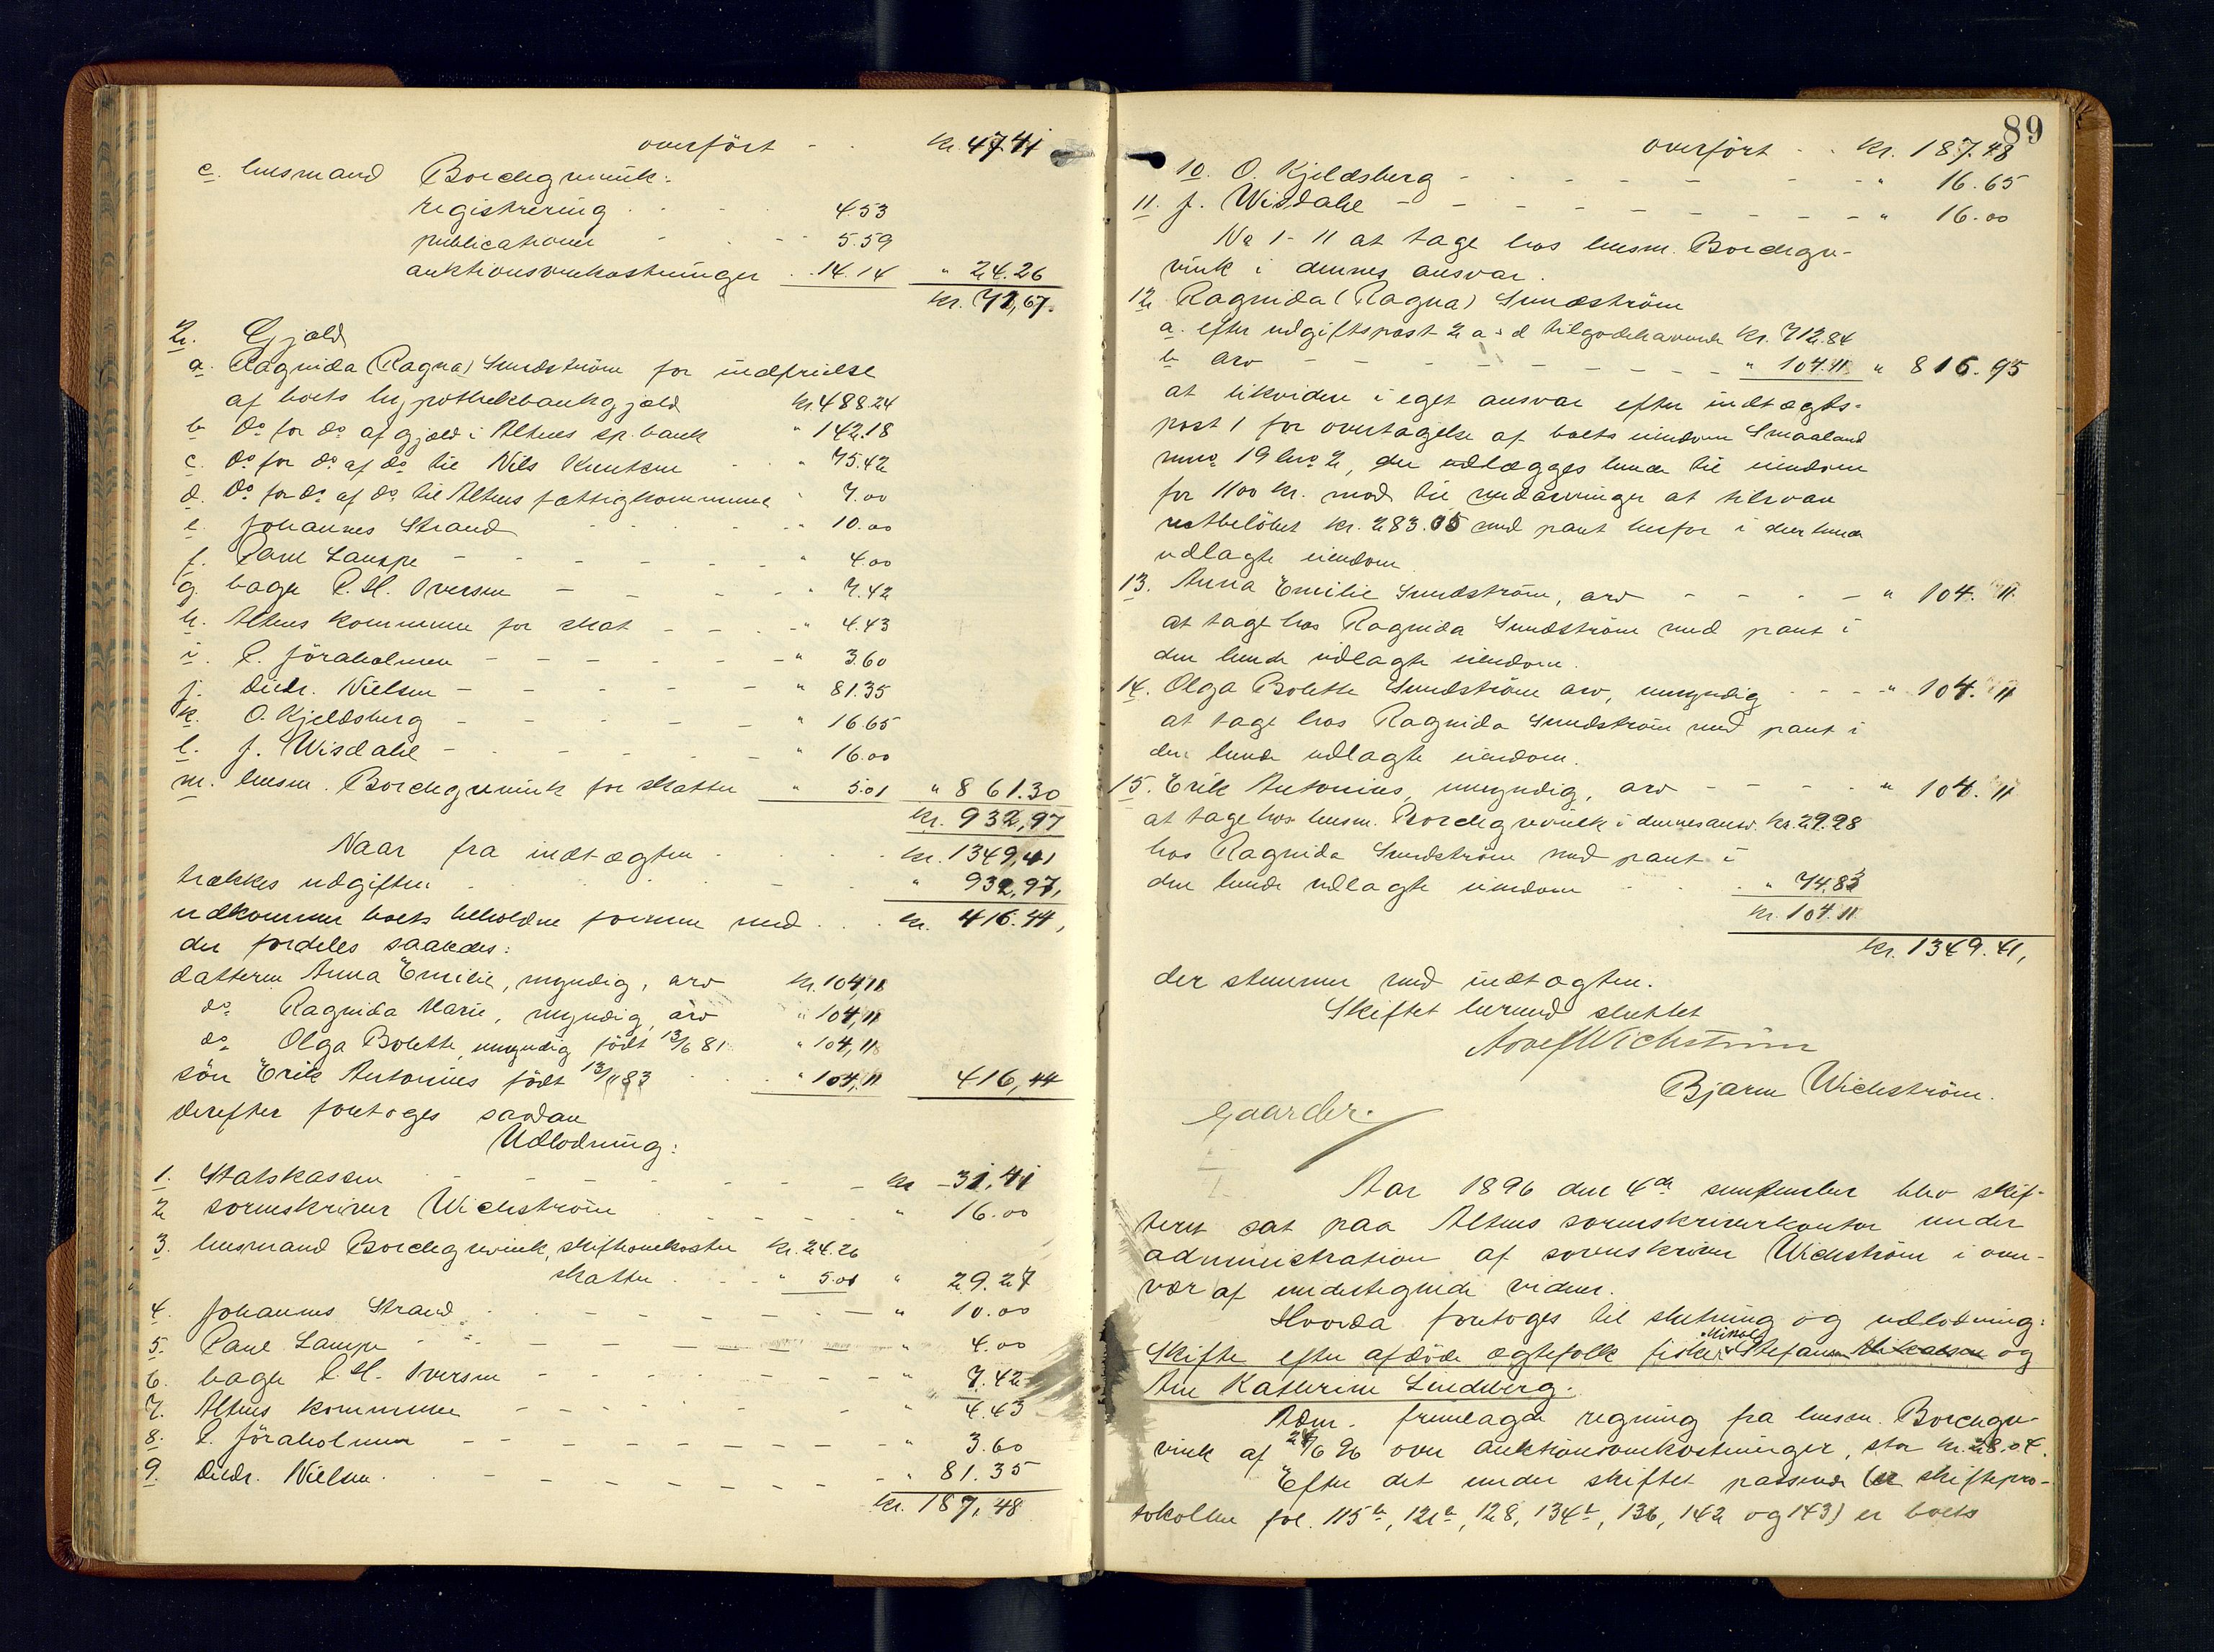 overført - - kr. 47.41
c. lensmand Borchgrevink:
registrering - - - 4.53
publicationer - - - 5.59
auktionsomkostninger - 14.14 " 24.26
kr. 71,67.
2. Gjæld
a. Ragnida (Ragna) Sundström for indfrielse
af boets hypothekbankgjæld kr. 488.24
b. do for do af gjæld i Altens sp. bank " 142.18
c. do for do af do til Nils Knutsen - " 75.42
d. do for do af do til Altens fattigkommune " 7.00
e. Johannes Strand - - - " 10.00
f. Paul Lampe - - - - " 4.00
g. bager P. H. Iversen - - - " 7.42
h. Altens kommune for skat - - - " 4.43
i. P. Jöraholmen - - - - " 3.60
j. Diedr. Nielsen - - - - " 81.35
k. O. Kjeldsberg - - - - " 16.65
l. J. Wisdahl - - - - " 16.00
m. lensm. Borchgrevink for skatter " 5.01 " 861.30
kr. 932,97
Naar fra indtægten - - - kr. 1349,41
trækkes udgiften - - - " 932,97,
udkommer boets beholdne formue med - - kr. 416.44,
der fordeles saaledes:
datteren Anna Emilie, myndig, arv kr. 104,11
do Ragnida Marie, myndig, arv " 104,11
do Olga Bolette, umyndig født 13/6 81 " 104,11
sön Erik Antonius født 13/11 83 - - " 104,11 416,44
derefter foretoges saadan
Udlodning:
1. Statskassen - - - - - kr 31,41
2 sorenskriver Wichström - - - " 16.00
3. lensmand Borchgrevink, skifteomkoster kr. 24.26
skatter - - " 5.01 " 29.27
4. Johannes Strand - - - - " 10.00
5. Paul Lampe - - - - " 4.00
6. bager P. H. Iversen - - - - " 7.42
7. Altens kommune - - - - " 4.43
8. P. Jöraholmen - - - - " 3.60
9. Diedr. Nielsen - - - - " 81.35
kr. 187,48
89
overført - - kr. 187.48
10. O. Kjeldsberg - - - - " 16.65
11. J. Wisdahl - - - - " 16.00
No 1-11 at tage hos lensm. Borchgre-
vink i dennes ansvar.
12. Ragnida (Ragna) Sundström
a. efter udgiftspost 2 a-d tilgodehavende kr. 712.84
b arv - - - - " 104.11 " 816.95
at likvidere i eget ansvar efter indtægts-
post 1 for overtagelse af boets eiendom Smaaland
mno 19 bno 2, der udlægges hende til eiendom
for 1100 kr. mod til medarvinger at tilsvare
restbeløbet kr. 283.05 med pant herfor i den hende
udlagte eiendom
13. Anna Emilie Sundström, arv - - - " 104.11
at tage hos Ragnida Sundström med pant i
den hende udlagte eiendom.
14. Olga Bolette Sundström arv, umyndig - - - " 104.11
at tage hos Ragnida Sundström med pant i
den hende udlagte eiendom.
15. Erik Antonius, umyndig, arv - - - " 104.11
at tage hos lensm. Borchgrevink i dennes ansv. kr. 29.28
hos Ragnida Sundström med pant i
den hende udlagte eiendom - - " 74.83
kr. 104.11
kr. 1349.41,
der stemmer med indtægten.
Skiftet hermed sluttet
Wichström
Bjarne Wichström.
Gaarder.
Aar 1896 den 4de september blev skif-
teret sat paa Altens sorenskriverkontor under
administration af sorenskriver Wichström i over-
vær af undertegnede vidner.
Hvorda foretoges til slutning og udlodning:
Skifte efter afdøde ægtefolk fisker Nikolai Stefanus Nikolaisen og
Ane Kathrine Lindeberg.
Adm. fremlagde regning fra lensm. Borchgre-
vink af 24/6 96 over auktionsomkostninger, stor kr. 28.04.
Efter det under skiftet passerede (cr skiftepro-
tokollen fol. 115b, 121b, 128, 134b, 136, 142 og 143) er boets